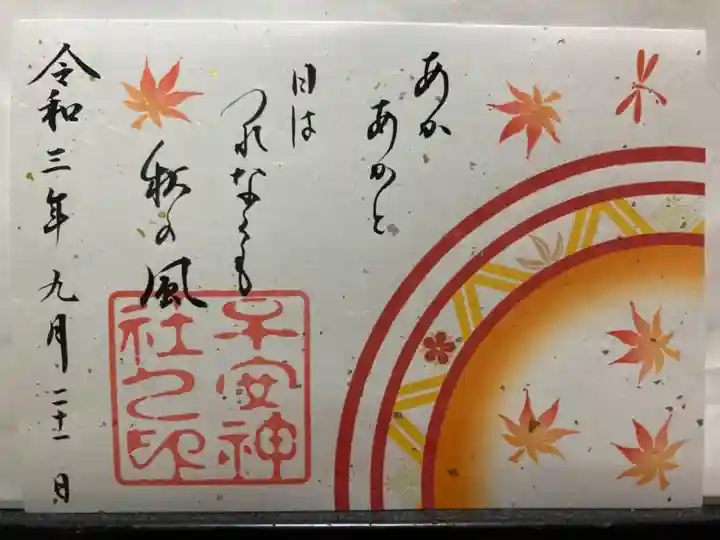 あか
あかと
日は
つれなくも
秋の風
令和三年九月二十一日
子安神
社之印